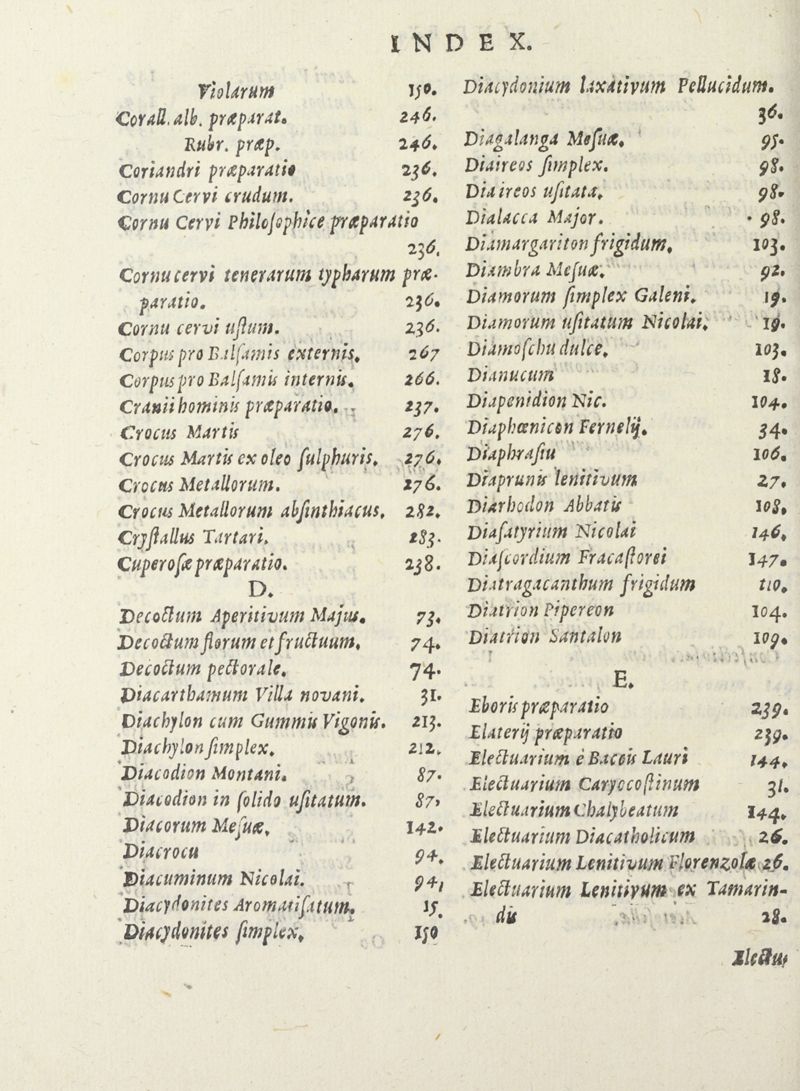 INDEX.
Violarum 150.
Corall. alb. præparat. 246.
Rubr. præp. 246.
Coriandri præparatio 236.
Cornu Cervi crudum. 236.
Cornu Cervi Philosophice præparatio
236.
Cornu cervi tenerarum typharum præ-
paratio. 236.
Cornu cervi ustum. 236.
Corpus pro Balsamis externis. 267
Corpus pro Balsamis internis. 266.
Cranii hominis præparatio. 237.
Crocus Martis 276.
Crocus Martis ex oleo sulphuris. 276.
Crocus Metallorum. 276.
Crocus Metallorum absinthiacus. 282.
Crystallus Tartari. 283.
Cuperosæ præparatio. 238.
D.
Decoctum Aperitivum Majus. 73.
Decoctum florum et fructuum. 74.
Decoctum pectorale. 74.
Diacarthamum Villa novani. 31.
Diachylon cum Gummis Vigonis. 213.
Diachylon simplex. 212.
Diacodion Montani. 87.
Diacodion in solido usitatum. 87,
Diacorum Mesuæ. 142.
Diacrocu 94.
Diacuminum Nicolai. 94,
Diacydonites Aromatisatum. 15.
Diacydonites simplex. 150
Diacydonium laxativum Pellucidum.
36.
Diagalanga Mesuæ. 95.
Diaireos simplex. 98.
Diaireos usitata. 98.
Dialacca Major. 98.
Diamargariton frigidum. 103.
Diambra Mesuæ. 92.
Diamorum simplex Galeni. 19.
Diamorum usitatum Nicolai. 19.
Diamoschu dulce. 103.
Dianucum 18.
Diapenidion Nic. 104.
Diaphœnicon Fernelij. 34.
Diaphrastu 106.
Diaprunis lenitivum 27.
Diarhodon Abbatis 108.
Diasatyrium Nicolai 146.
Diascordium Fracastorei 147.
Diatragacanthum frigidum 110.
Diatrion Pipereon 104.
Diatrion Santalon 109.
E.
Eboris præparatio 239.
Elaterij præparatio 239.
Electuarium è Baccis Lauri 144.
Electuarium Caryocostinum 31.
Electuarium Chalybeatum 144.
Electuarium Diacatholicum 26.
Electuarium Lenitivum Florenzolæ 26.
Electuarium Lenitivum ex Tamarin-
dis 28.
Electu-